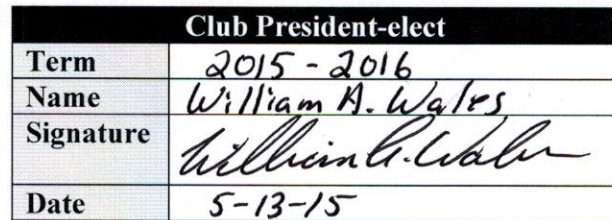 Club President-elect
Term 2015 - 2016
Name William A. Wales
Signature William A. Wales
Date 5-13-15